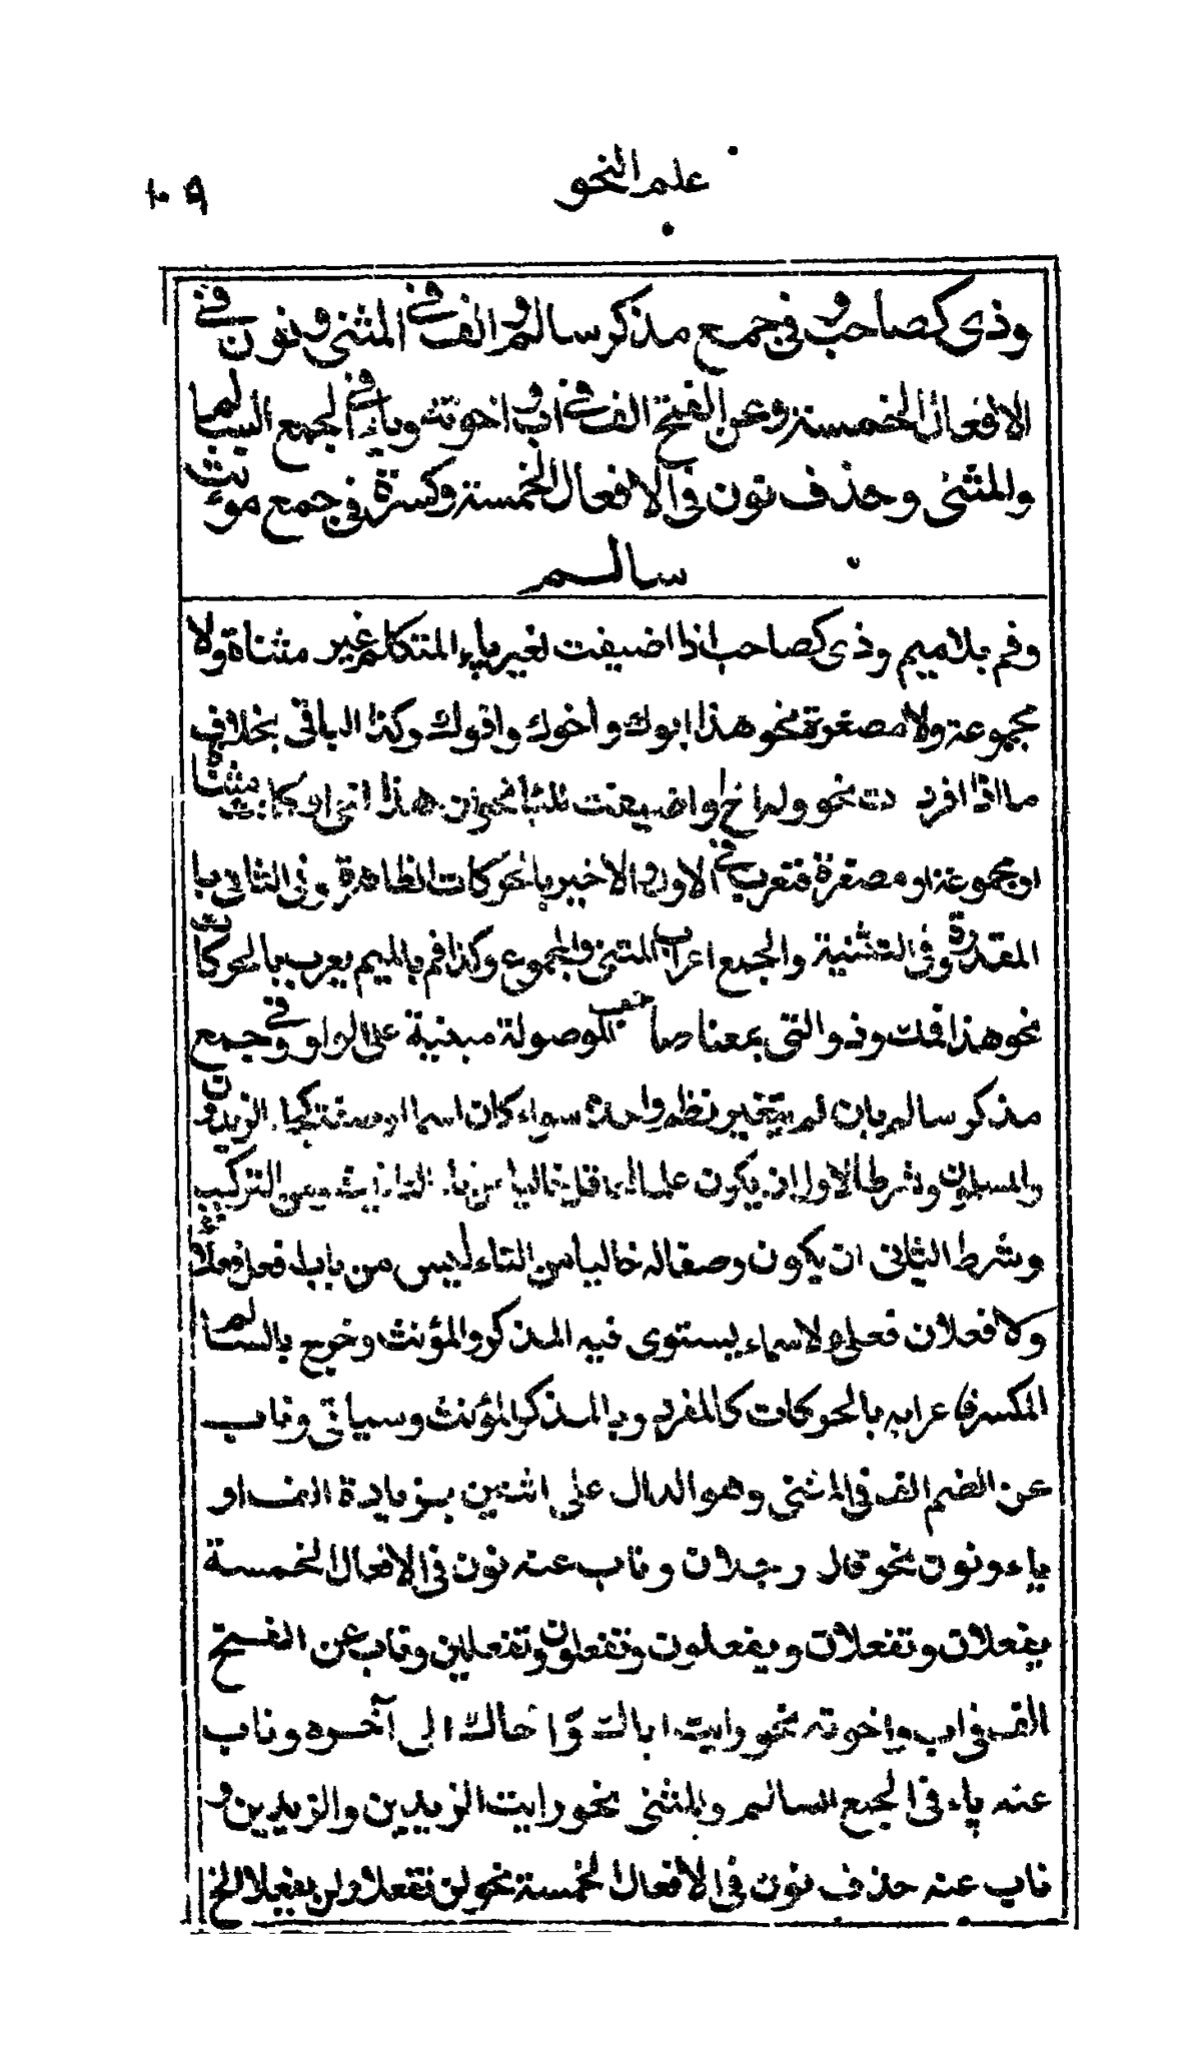 علم النحو
١٠٩
وذى كصاحب و فى جمع مذكر سالم والف فى المثنى و نون فى
الافعال الخمسة وعن الفتح الف فى اب واخوته وياء فى الجمع السالم
والمثنى وحذف نون فى الافعال الخمسة وكسرة فى جمع مؤنث
سالم
وفم بلاميم وذى كصاحب اذا اضيفت لغير ياء المتكلم غير مثناة ولا
مجموعة ولا مصغرة نحو هذا ابوك واخوك وافوك وكذا الباقى بخلاف
ما اذا افردت نحو وله اخ او اضيفت للياء نحو ان هذا اخى او كانت مثناة
او مجموعة او مصغرة فتعرب فى الاول والاخير بالحركات الظاهرة وفى الثانى با
المقدرة وفى التثنية والجمع اعراب المثنى والمجموع وكذا فم بالميم يعرب بالحركات
نحو هذا فمك وذو التى بمعنا صاحب الموصولة مبنية على الواو و فى جمع
مذكر سالم بان لم يتغير نظم واحده سواء كان اسما او صفة كجاء الزيدون
والمسلمون وشرط الاول ان يكون علما لعاقل خاليا من تاء التانيث ومن التركيب
وشرط الثانى ان يكون وصفا له خاليا من التاء ليس من باب افعل فعلاء
ولا فعلان فعلى ولا اسماء يستوى فيه المذكر والمؤنث وخرج بالسالم
المكسر فاعرابه بالحركات كالمفرد وبالمذكر المؤنث وسياتى وناب
عن الضم الف فى المثنى وهو الدال على اثنين بزيادة الف او
ياء ونون نحو قال رجلان وناب عنه نون فى الافعال الخمسة
يفعلان وتفعلان ويفعلون وتفعلون وتفعلين وناب عن الفتح
الف فى اب واخوته نحو رايت اباك وَاخاك الى آخره وناب
عنه ياء فى الجمع السالم والمثنى نحو رايت الزيدين والزيدين و
ناب عنه حذف نون فى الافعال الخمسة نحو لن تفعلا ولن يفعلا الخ